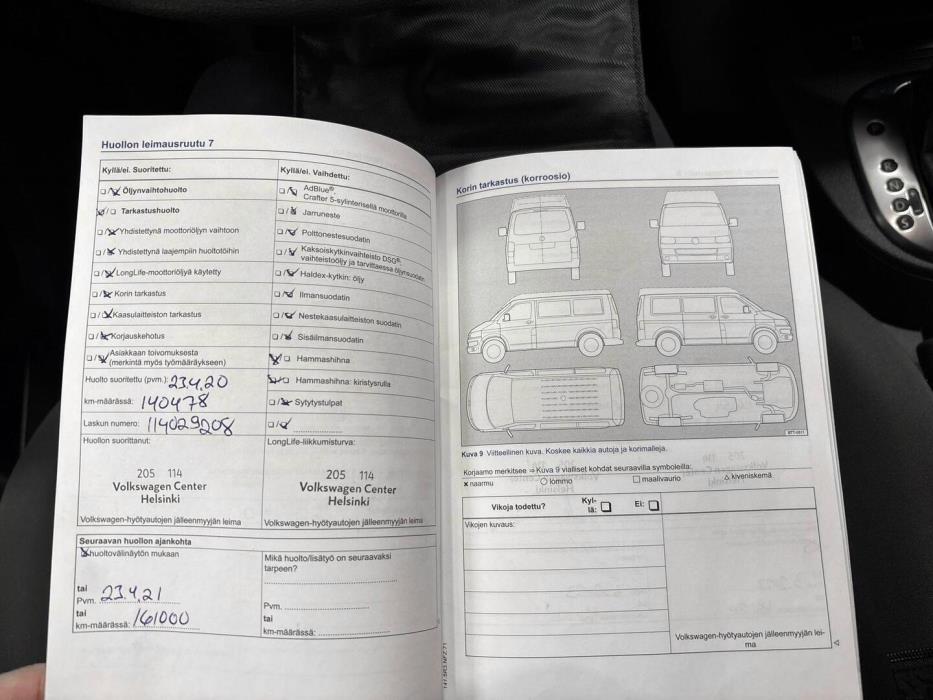 Huollon leimausruutu 7
Kyllä/ei. Suoritettu:
Öljynvaihtohuolto
Tarkastushuolto
Yhdistettynä moottoriöljyn vaihtoon
Yhdistettynä laajempiin huoltotöihin
LongLife-moottoriöljyä käytetty
Korin tarkastus
Kaasulaitteiston tarkastus
Korjauskehotus
Asiakkaan toivomuksesta
(merkintä myös työmääräykseen)
Huolto suoritettu (pvm.): 23.4.20
km-määrässä: 140478
Laskun numero: 114029208
Huollon suorittanut:
205 114
Volkswagen Center
Helsinki
Volkswagen-hyötyautojen jälleenmyyjän leima
Kyllä/ei. Vaihdettu:
AdBlue®,
Crafter 5-sylinterisellä moottorilla
Jarruneste
Polttonestesuodatin
Kaksoiskytkinvaihteisto DSG®:
vaihteistoöljy ja tarvittaessa öljynsuodatin
Haldex-kytkin: öljy
Ilmansuodatin
Nestekaasulaitteiston suodatin
Sisäilmansuodatin
Hammashihna
Hammashihna: kiristysrulla
Sytytystulpat
LongLife-liikkumisturva:
205 114
Volkswagen Center
Helsinki
Volkswagen-hyötyautojen jälleenmyyjän leima
Seuraavan huollon ajankohta
huoltovälinäytön mukaan
tai
Pvm. 23.4.21
tai
km-määrässä: 161000
Mikä huolto/lisätyö on seuraavaksi
tarpeen?
Pvm.
tai
km-määrässä:
141.5R3.NFZ.71
Korin tarkastus (korroosio)
B7T-0811
Kuva 9 Viitteellinen kuva. Koskee kaikkia autoja ja korimalleja.
Korjaamo merkitsee ⇒ Kuva 9 vialliset kohdat seuraavilla symboleilla:
× naarmu ○ lommo □ maalivaurio △ kiveniskemä
Vikoja todettu? Kyl-
lä: Ei:
Vikojen kuvaus:
Volkswagen-hyötyautojen jälleenmyyjän lei-
ma
R
N
D
S